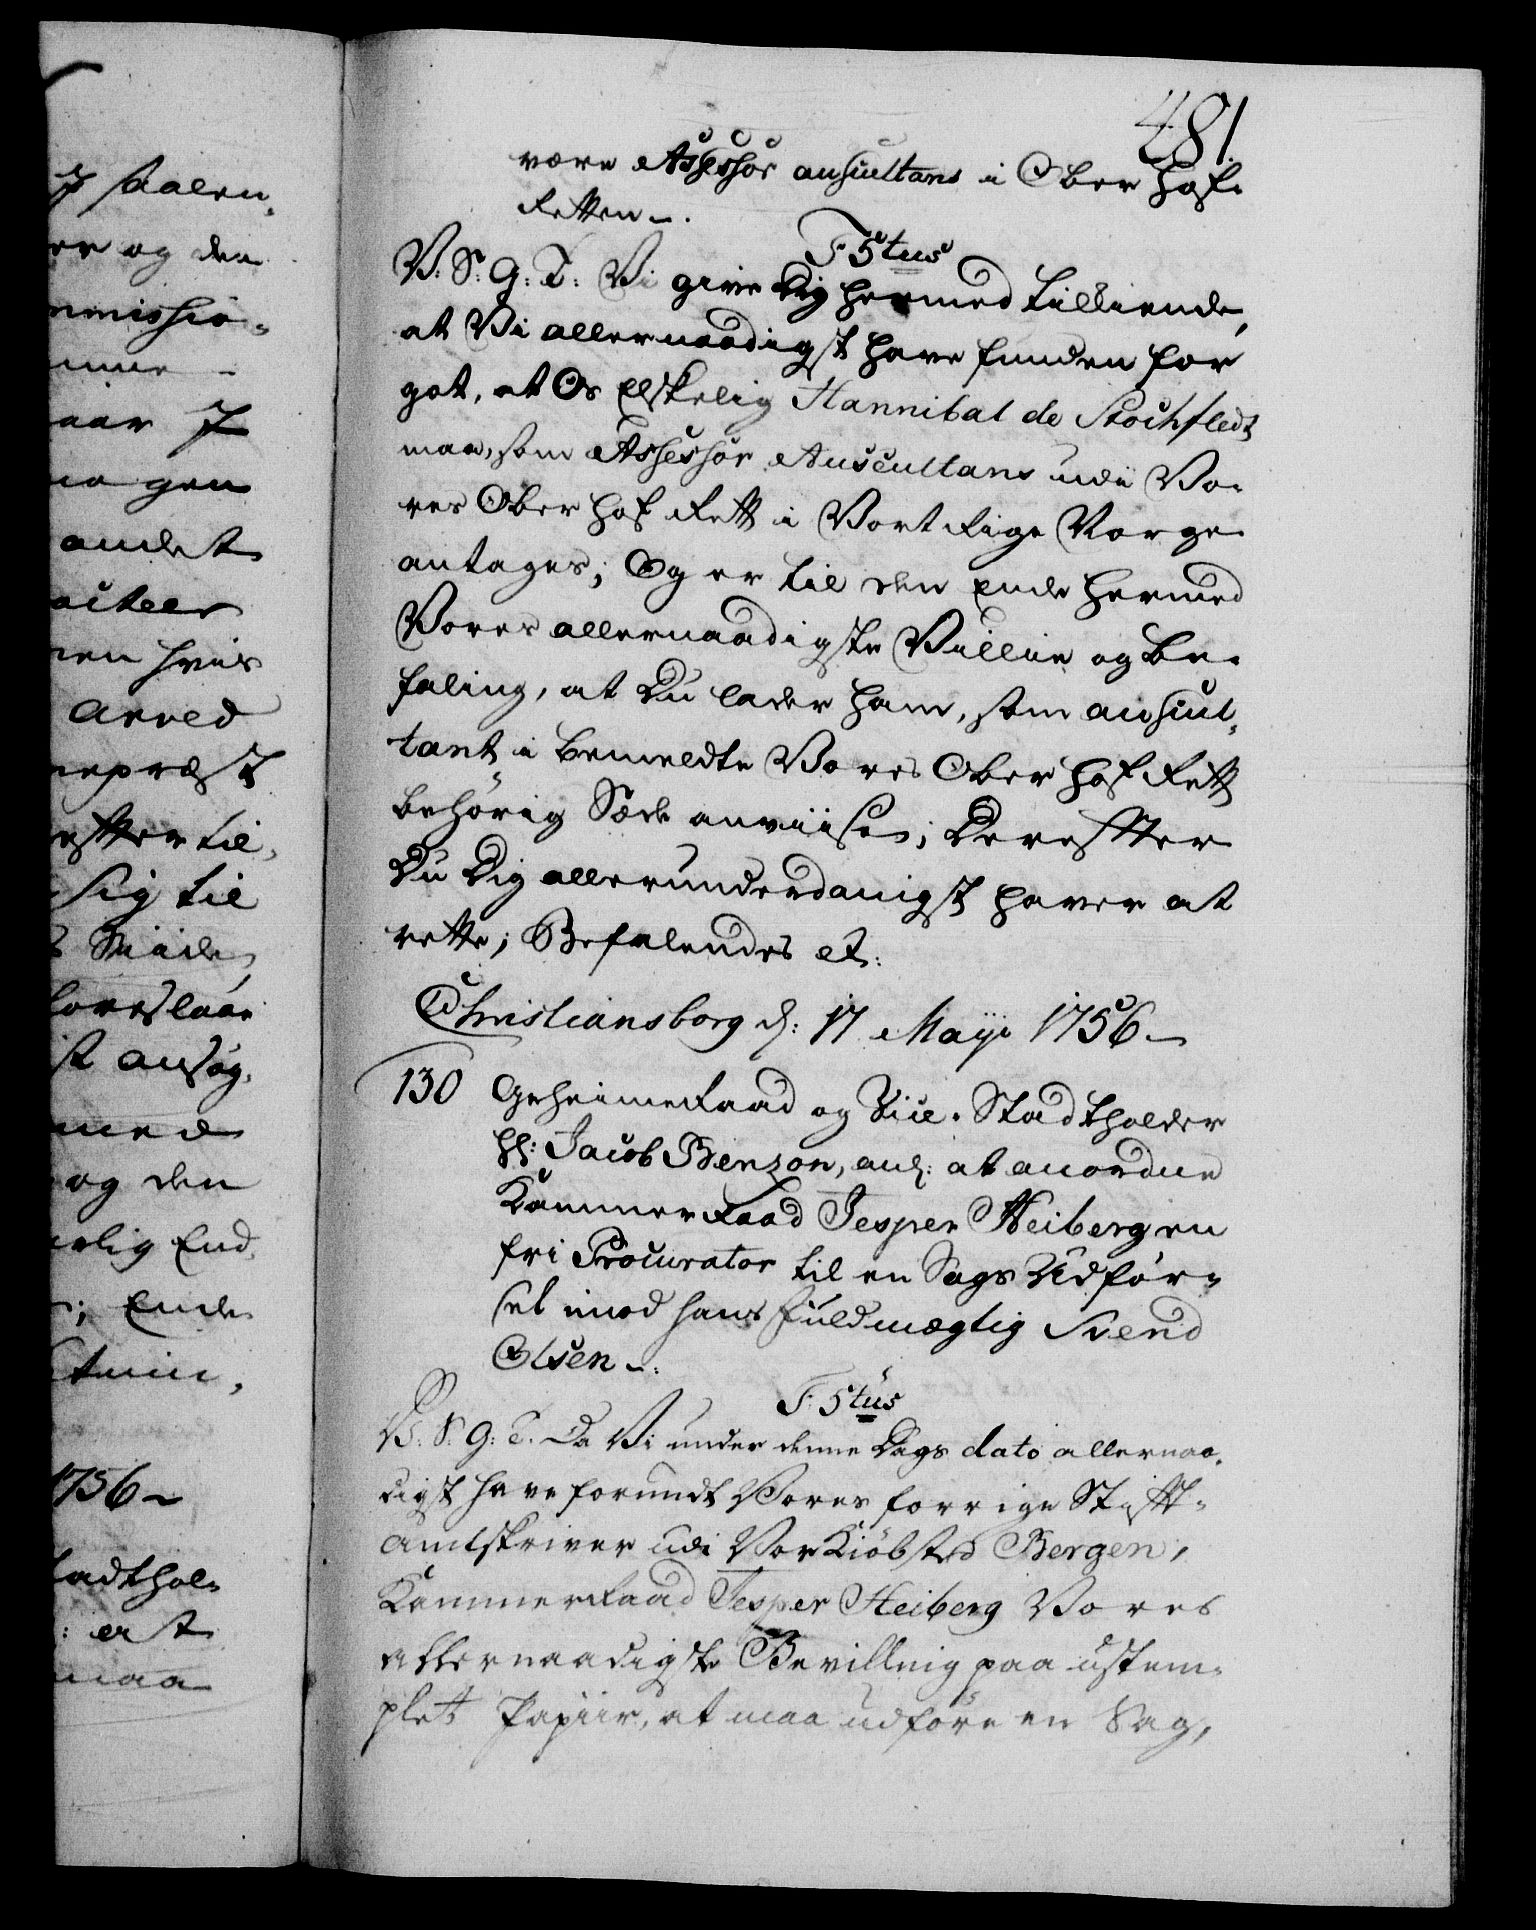 481.
være Assessor auscultans i Ober Hof-
Retten.
F 5tus
V: S: G: T: Vi give Dig hermed tilkiende,
at Vi allernaadigst have funden for
got, at Os Elskelig Hannibal de Stochfledt
maa, som Assessor Auscultans udi Vo-
res Ober Hof Rett i Vort Rige Norge
antages; Og er til den Ende hermed
Vores allernaadigste Villie og Be-
faling, at Du lader ham, som auscul-
tant i bemeldte Vores Ober Hof Rett
behörig Sæde anviise; Derefter
Du Dig allerunderdanigst haver at
rette; Befalendes etc:
Christiansborg d: 17 Maÿi 1756
130 Geheimeraad og Vice-Stadtholder
Hr: Jacob Benzon, ang: at anordne
Kammerraad Jesper Heiberg en
fri Procurator til en Sags Udför-
sel imod hans Fuldmægtig Svend
Olsen
F: 5tus
V: S: G: T: Da Vi under denne Dags dato allernaa-
digst have forundt Vores forrige Stift-
amtskriver udi Vor Kiöbsted Bergen,
Kammerraad Jesper Heiberg Vores
allernaadigste Bevilling paa ustem-
plet Papiir, at maa udföre en Sag,
Saalen-
er og den
mmissio-
aar
gen
andet
hvis
Arved
nepræst
efter til
sig til
Maade,
foreslaae
ansög-
med
og den
End
Ende
1756
Stadthol-
maa